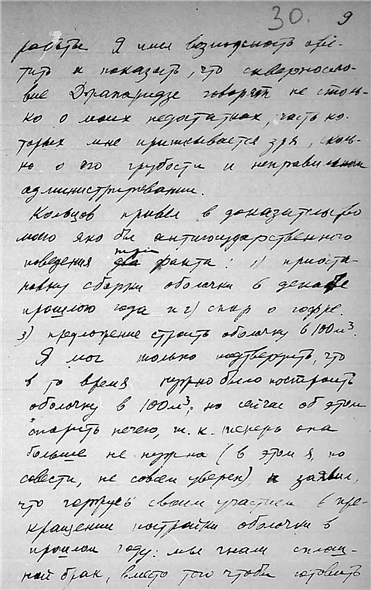 30. 9
работы. Я имел возможность отве-
тить и показать, что сквернословие
Джапаридзе говорят не столь-
ко о моих недостатках, часть ко-
торых мне приписывается зря, сколь-
ко о его грубости и неправильном
администрировании.
Кольцов привел в доказательство
моего якобы антигосударственного
поведения три факта: 1) приоста-
новку сборки оболочки в декабре
прошлого года и 2) спор о гофре.
3) предложение строить оболочку в 100 м³.
Я мог только подтвердить, что
в то время нужно было построить
оболочку в 100 м³, но сейчас об этом
спорить нечего, т. к. теперь она
больше не нужна (в этом я, по
совести, не совсем уверен) и заявил,
что горжусь своим участием в пре-
кращении постройки оболочки в
прошлом году: мы гнали сплош-
ной брак, вместо того чтобы готовить